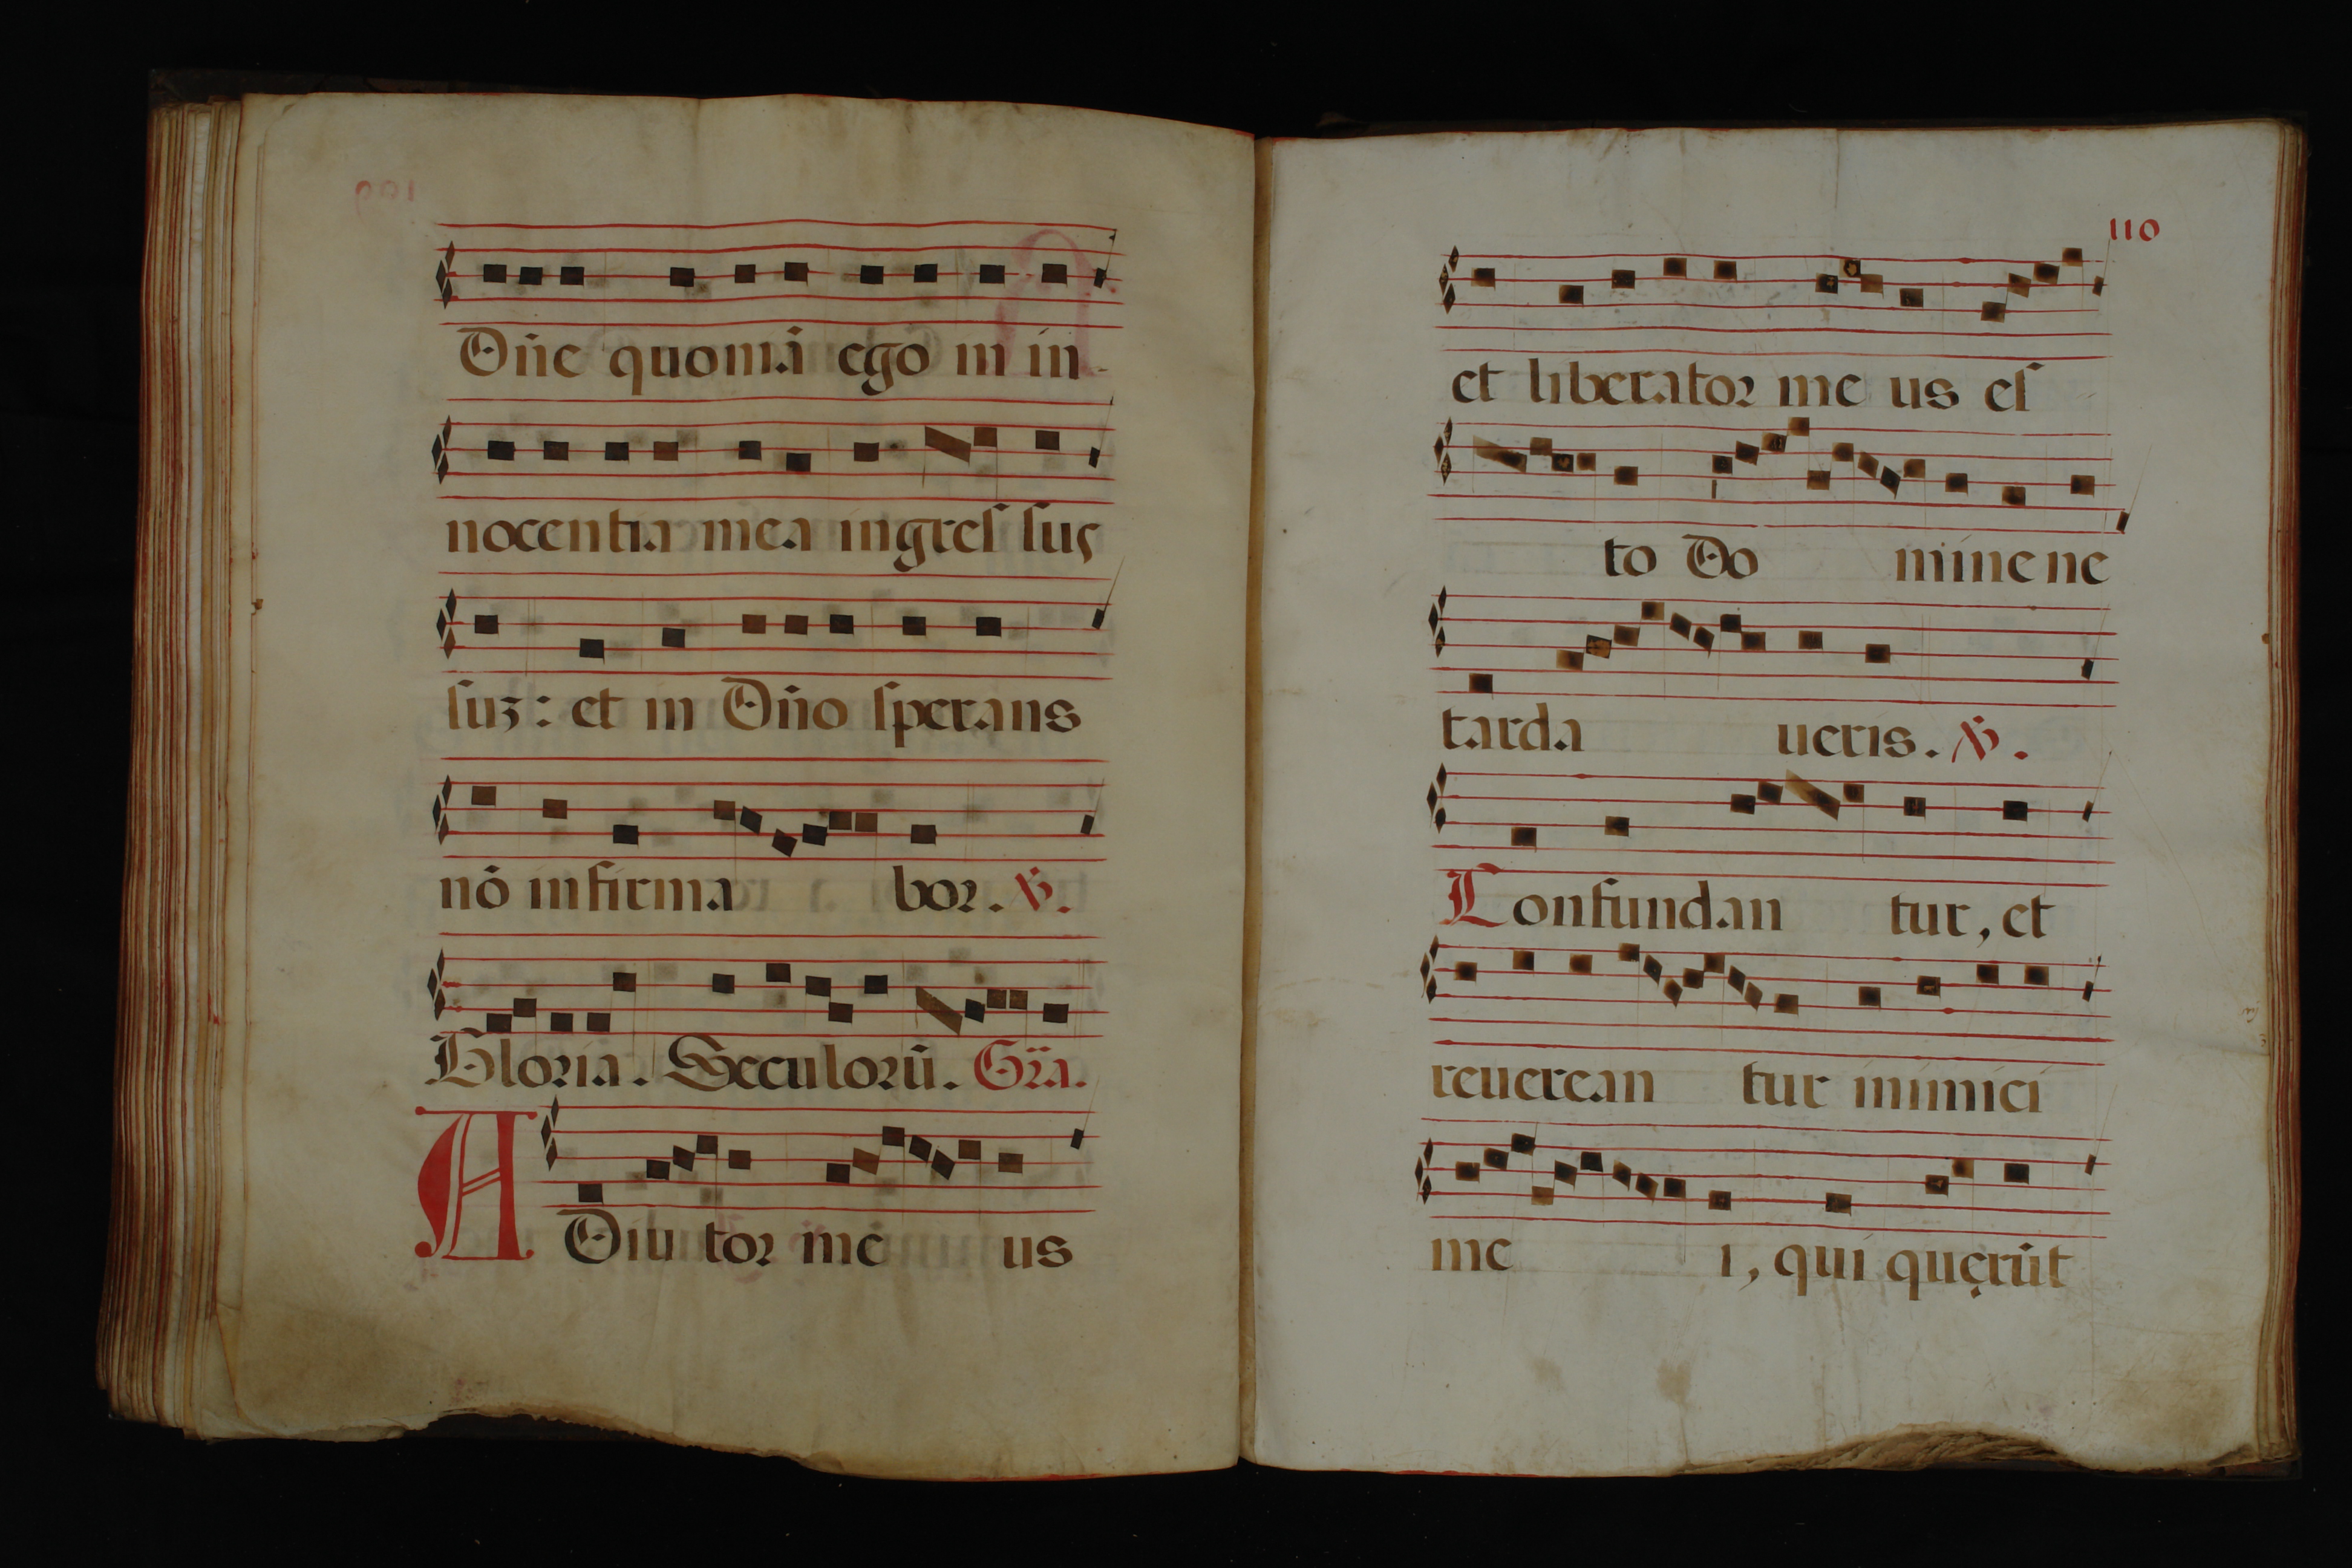 Dñe quoniā ego in in-
nocentia mea ingres sus
suz: et in Dño sperans
nō infirma bor. ℣.
Gloria. Seculorū. Gr̄a.
ADiu tor me us
110
et liberator me us es
to Do mine ne
tarda ueris. ℣.
Confundan tur, et
reuerean tur inimici
me i, qui quęrūt